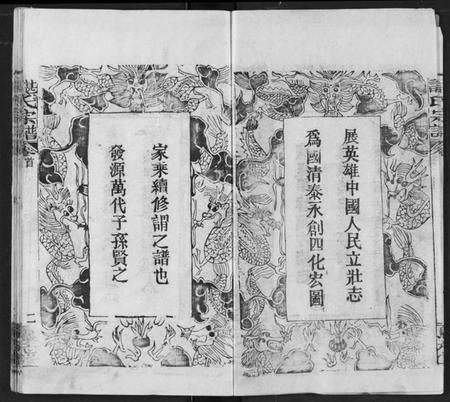 展英雄中國人民立壯志
為國清泰永創四化宏圖
家乘續修謂之譜也
發源萬代子孫賢之
氏宗譜
卷首
二
氏宗譜